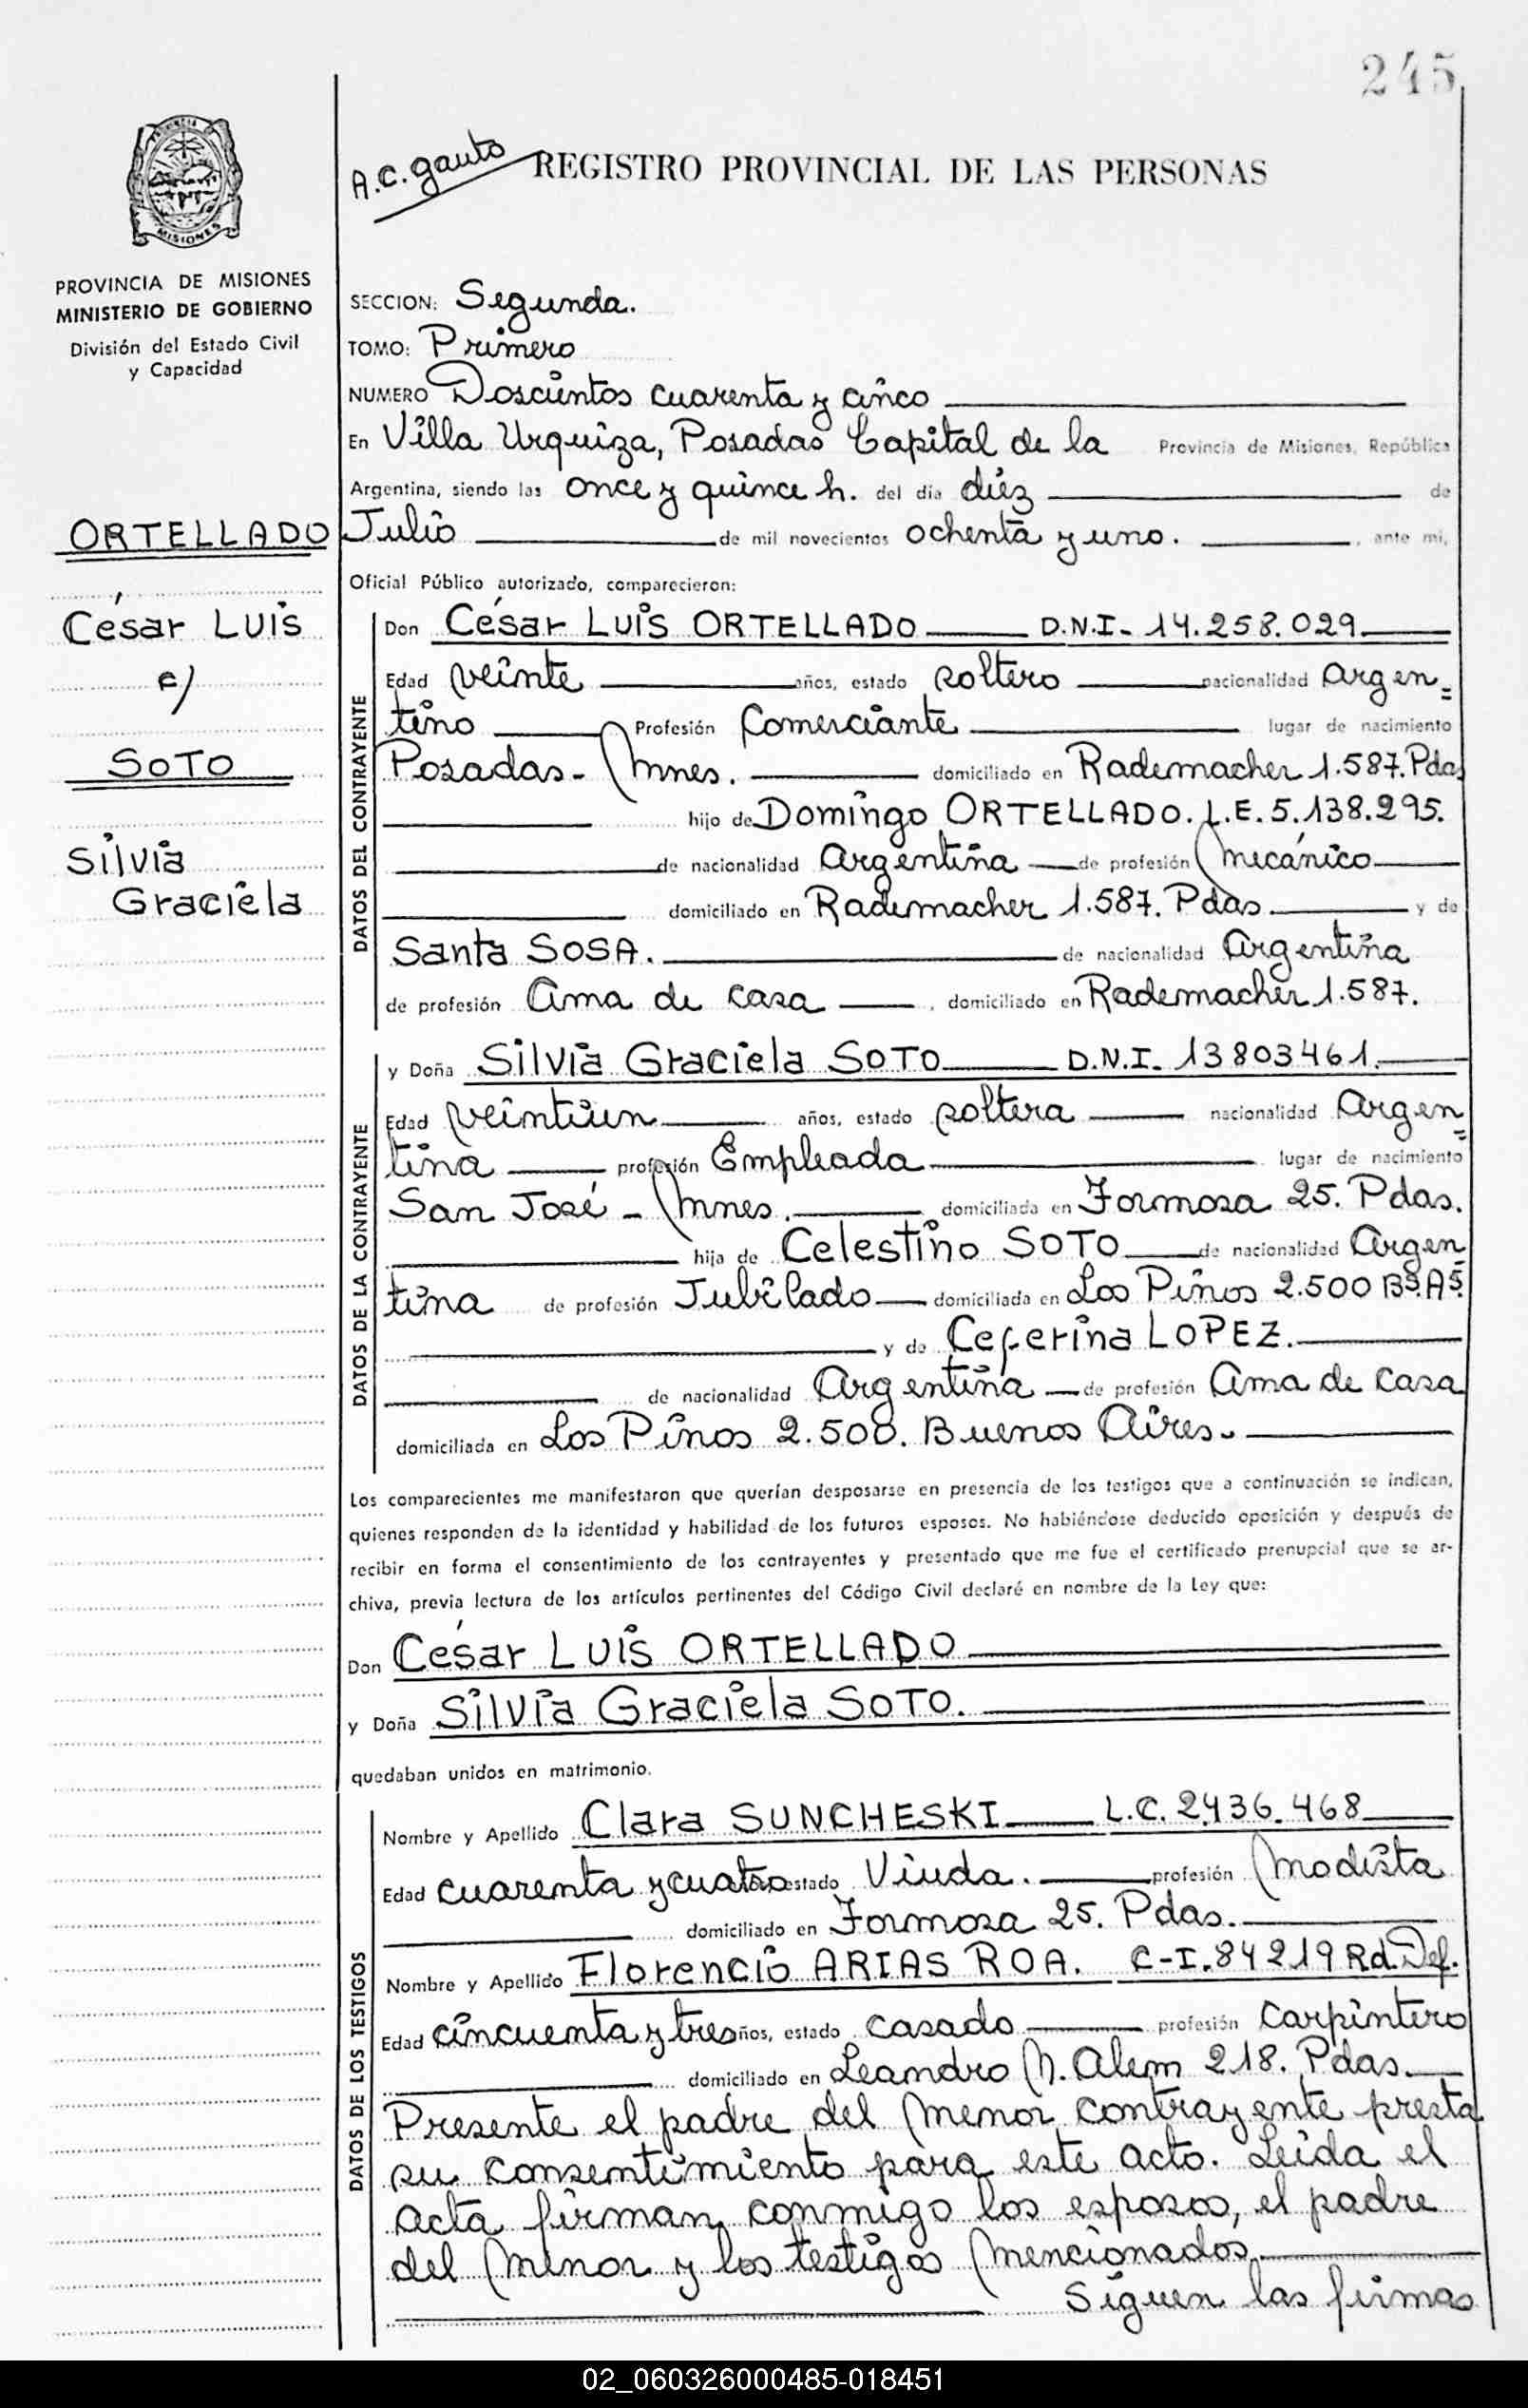 245
A.C. Gauto
REGISTRO PROVINCIAL DE LAS PERSONAS
MISIONES
PROVINCIA DE MISIONES
MINISTERIO DE GOBIERNO
División del Estado Civil
y Capacidad
SECCION: Segunda.
TOMO: Primero
NUMERO Doscientos cuarenta y cinco
En Villa Urquiza, Posadas Capital de la Provincia de Misiones, República
Argentina, siendo las once y quince h. del día diéz de
Julio de mil novecientos ochenta y uno. , ante mi,
Oficial Público autorizado, comparecieron:
ORTELLADO
César LUIS
c/
SOTO
Silvia
Graciela
DATOS DEL CONTRAYENTE
Don César LUIS ORTELLADO D.N.I- 14.258.029
Edad veinte años, estado soltero nacionalidad Argen=
tino Profesión Comerciante lugar de nacimiento
Posadas- Mnes. domiciliado en Rademacher 1.587. Pdas
hijo de Domingo ORTELLADO. L.E. 5.138.295.
de nacionalidad Argentina de profesión Mecánico
domiciliado en Rademacher 1.587. Pdas y de
Santa SOSA. de nacionalidad Argentina
de profesión Ama de casa , domiciliado en Rademacher 1.587.
DATOS DE LA CONTRAYENTE
y Doña Silvia Graciela SOTO D.N.I. 13803461.
Edad veintiun años, estado soltera nacionalidad Argen=
tina profesión Empleada lugar de nacimiento
San José - Mnes. domiciliada en Formosa 25. Pdas.
hija de Celestino SOTO de nacionalidad Argen=
tina de profesión Jubilado domiciliada en Los Pinos 2.500 Bs.As.
y de Ceferina LOPEZ.
de nacionalidad Argentina de profesión Ama de casa
domiciliada en Los Pinos 2.500. Buenos Aires.
Los comparecientes me manifestaron que querían desposarse en presencia de los testigos que a continuación se indican,
quienes responden de la identidad y habilidad de los futuros esposos. No habiéndose deducido oposición y después de
recibir en forma el consentimiento de los contrayentes y presentado que me fue el certificado prenupcial que se ar-
chiva, previa lectura de los artículos pertinentes del Código Civil declaré en nombre de la Ley que:
Don César LUIS ORTELLADO
y Doña Silvia Graciela SOTO.
quedaban unidos en matrimonio.
DATOS DE LOS TESTIGOS
Nombre y Apellido Clara SUNCHESKI L.C. 2436.468
Edad cuarenta y cuatro estado Viuda. profesión Modista
domiciliado en Formosa 25. Pdas.
Nombre y Apellido Florencio ARIAS ROA. C-I.84219 Rd.Def.
Edad cincuenta y tres años, estado casado profesión Carpintero
domiciliado en Leandro N. Alem 218. Pdas.
Presente el padre del menor contrayente presta
su consentimiento para este acto. Leida el
acta firman conmigo los esposos, el padre
del menor y los testigos mencionados.
Siguen las firmas
02_060326000485-018451